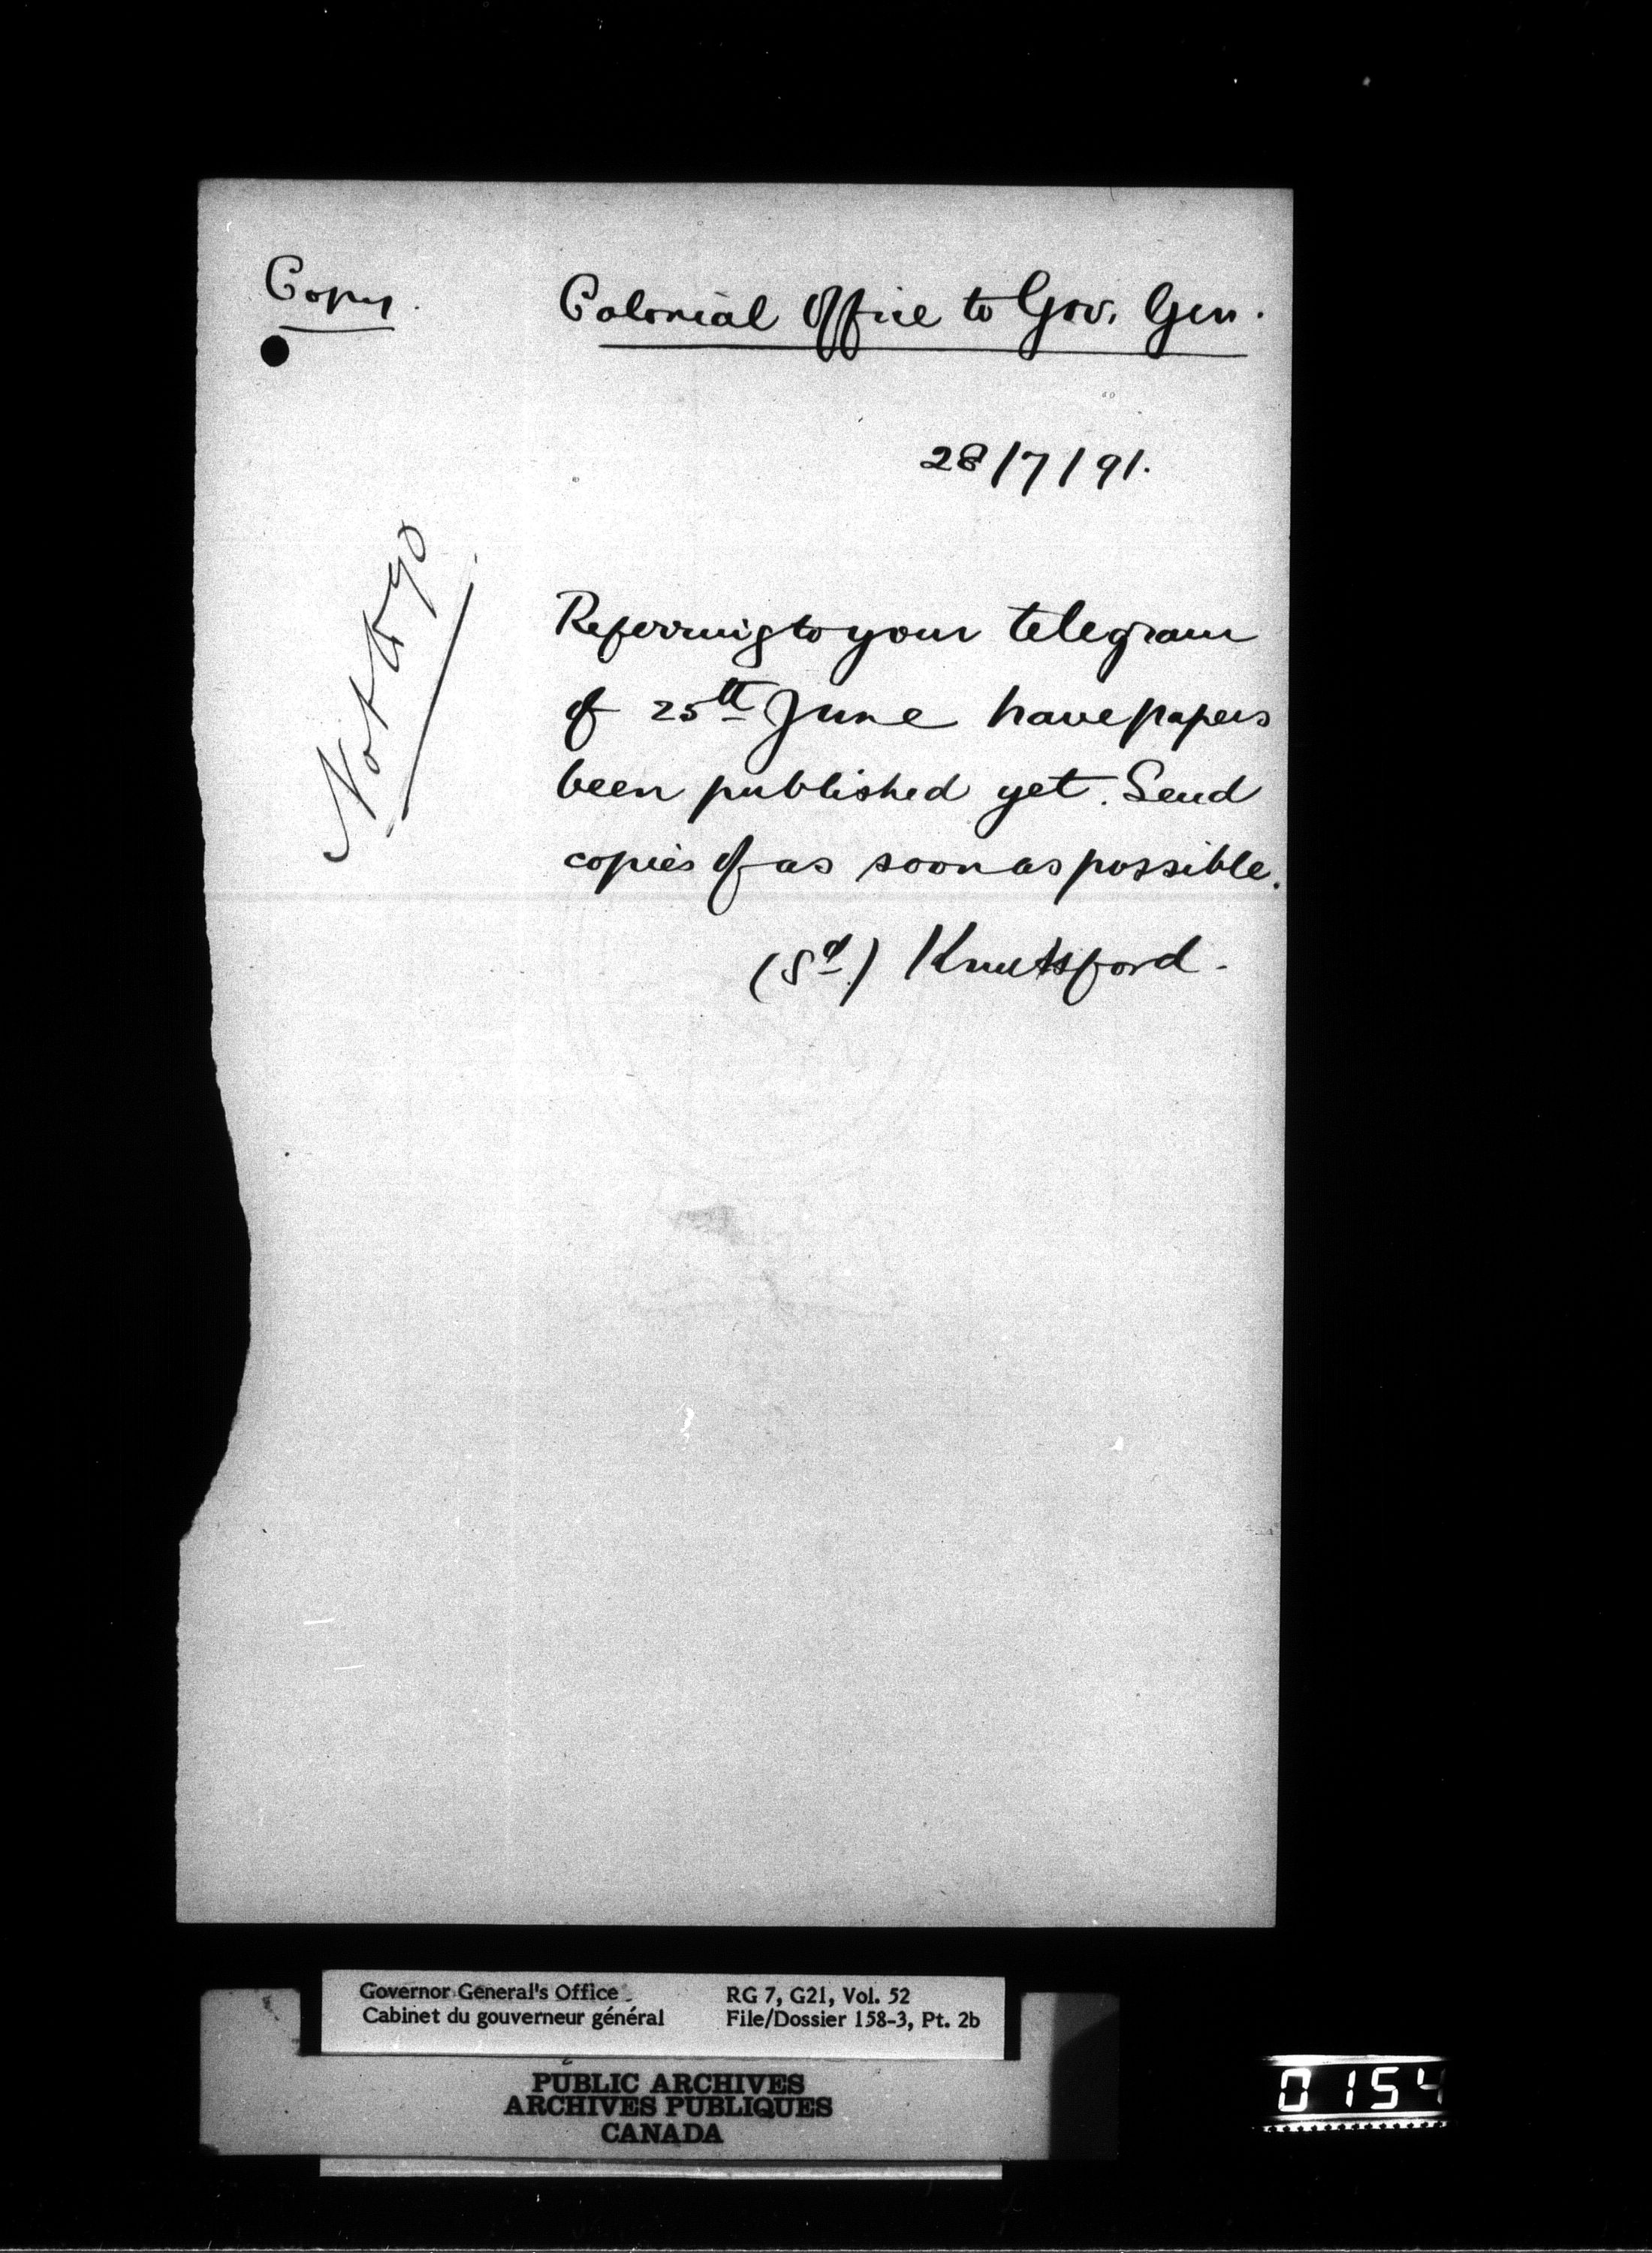 Copy.
Colonial Office to Gov. Gen.
28/7/91.
Not to go
Referring to your telegram
of 25th June have papers
been published yet. Send
copies of as soon as possible.
(Sd) Knutsford.
Governor General's Office
Cabinet du gouverneur général
RG 7, G21, Vol. 52
File/Dossier 158-3, Pt. 2b
PUBLIC ARCHIVES
ARCHIVES PUBLIQUES
CANADA
0154